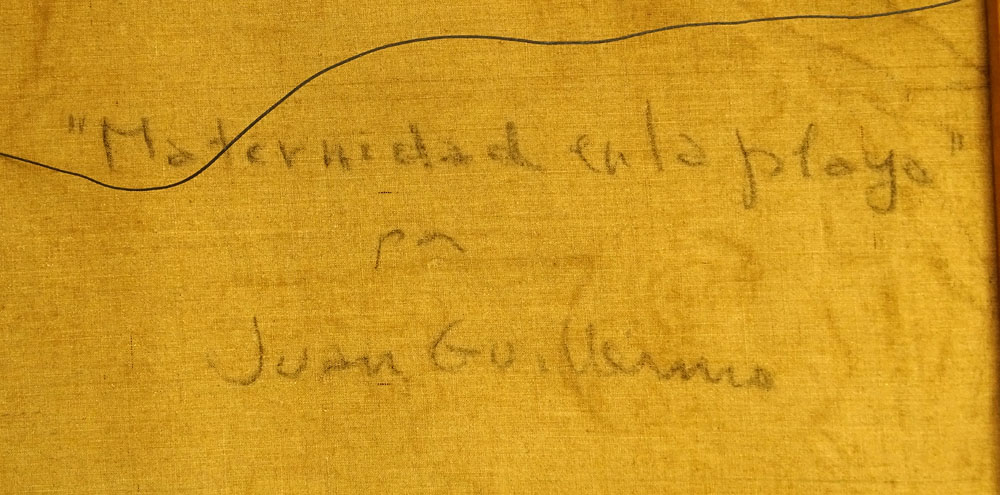 "Maternidad en la playa"
por
Juan Guillermo